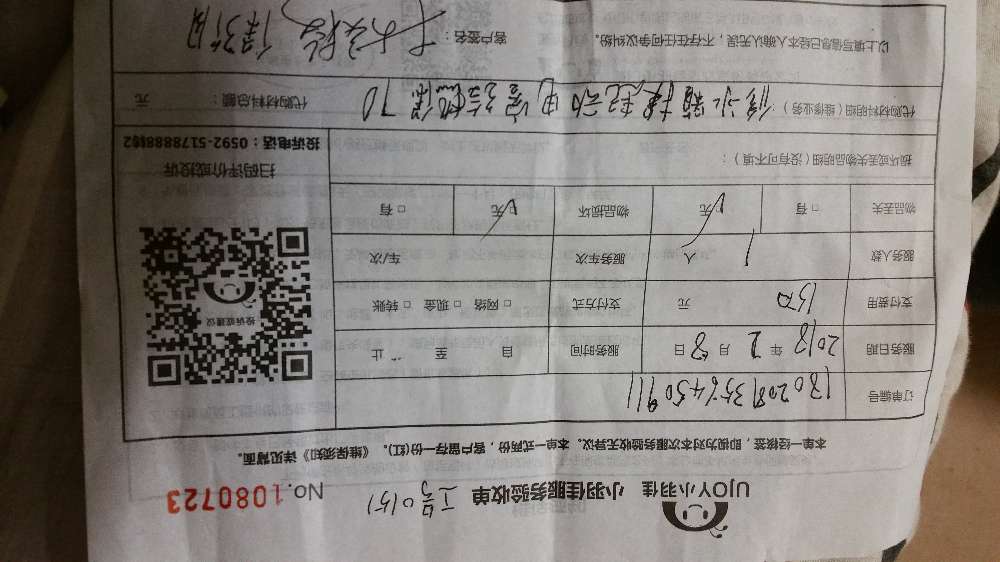 UJOY小羽佳 小羽佳服务验收单 工号0151 No.1080723
本单一经核签，即视为对本次服务验收无异议。本单一式两份，客户留存一份(红)。《维保须知》详见背面。
订单编号
服务日期 2018 年 2 月 8 日 服务时间 自 至 止
支付费用 150 元 支付方式 □ 网络 □ 现金 □ 转账
服务人数 1 人 服务车次 车/次
物品丢失 □ 有 √无 物品损坏 √无 □ 有
损坏或丢失物品明细（没有可不填）：
投诉或建议
扫码评价或投诉
投诉电话：0592-5178888转2
代购材料明细（维修业务） 修冰箱换起动电容 70
代购材料总额： 元
以上填写信息已经本人确认无误，不存在任何争议纠纷。 客户签名：